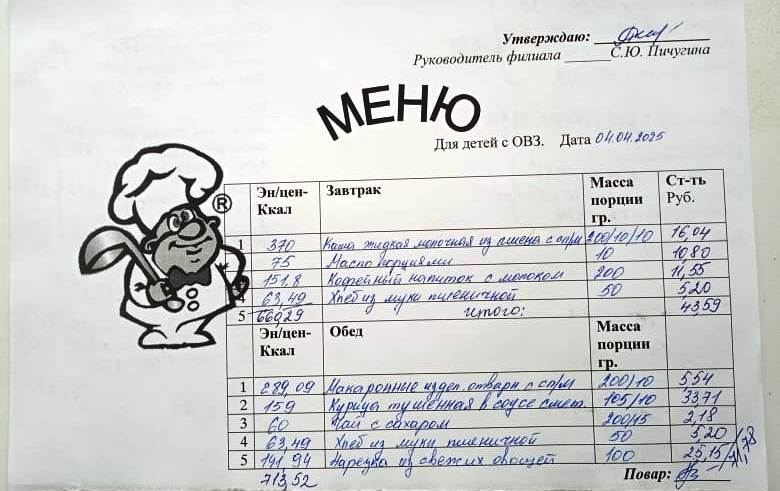 Утверждаю:
Руководитель филиала ______ С.Ю. Пичугина
МЕНЮ
Для детей с ОВЗ. Дата 04.04.2025
Эн/цен-Ккал Завтрак Масса порции гр. Ст-ть Руб.
1 370 Каша жидкая молочная из пшена с сл/м 200/10/10 16,04
75 Масло порциями 10 10,80
151,8 Кофейный напиток с молоком 200 11,55
4 63,49 Хлеб из муки пшеничной 50 5,20
5 660,29 итого: 43,59
Эн/цен-Ккал Обед Масса порции гр.
1 289,09 Макаронные издел. отварн. с сл/м 200/10 5,54
2 159 Курица тушенная в соусе смет. 105/10 33,71
3 60 Чай с сахаром 200/15 2,18
4 63,49 Хлеб из муки пшеничной 50 5,20
5 141,94 Нарезка из свежих овощей 100 25,15
713,52 Повар: 71,78
®